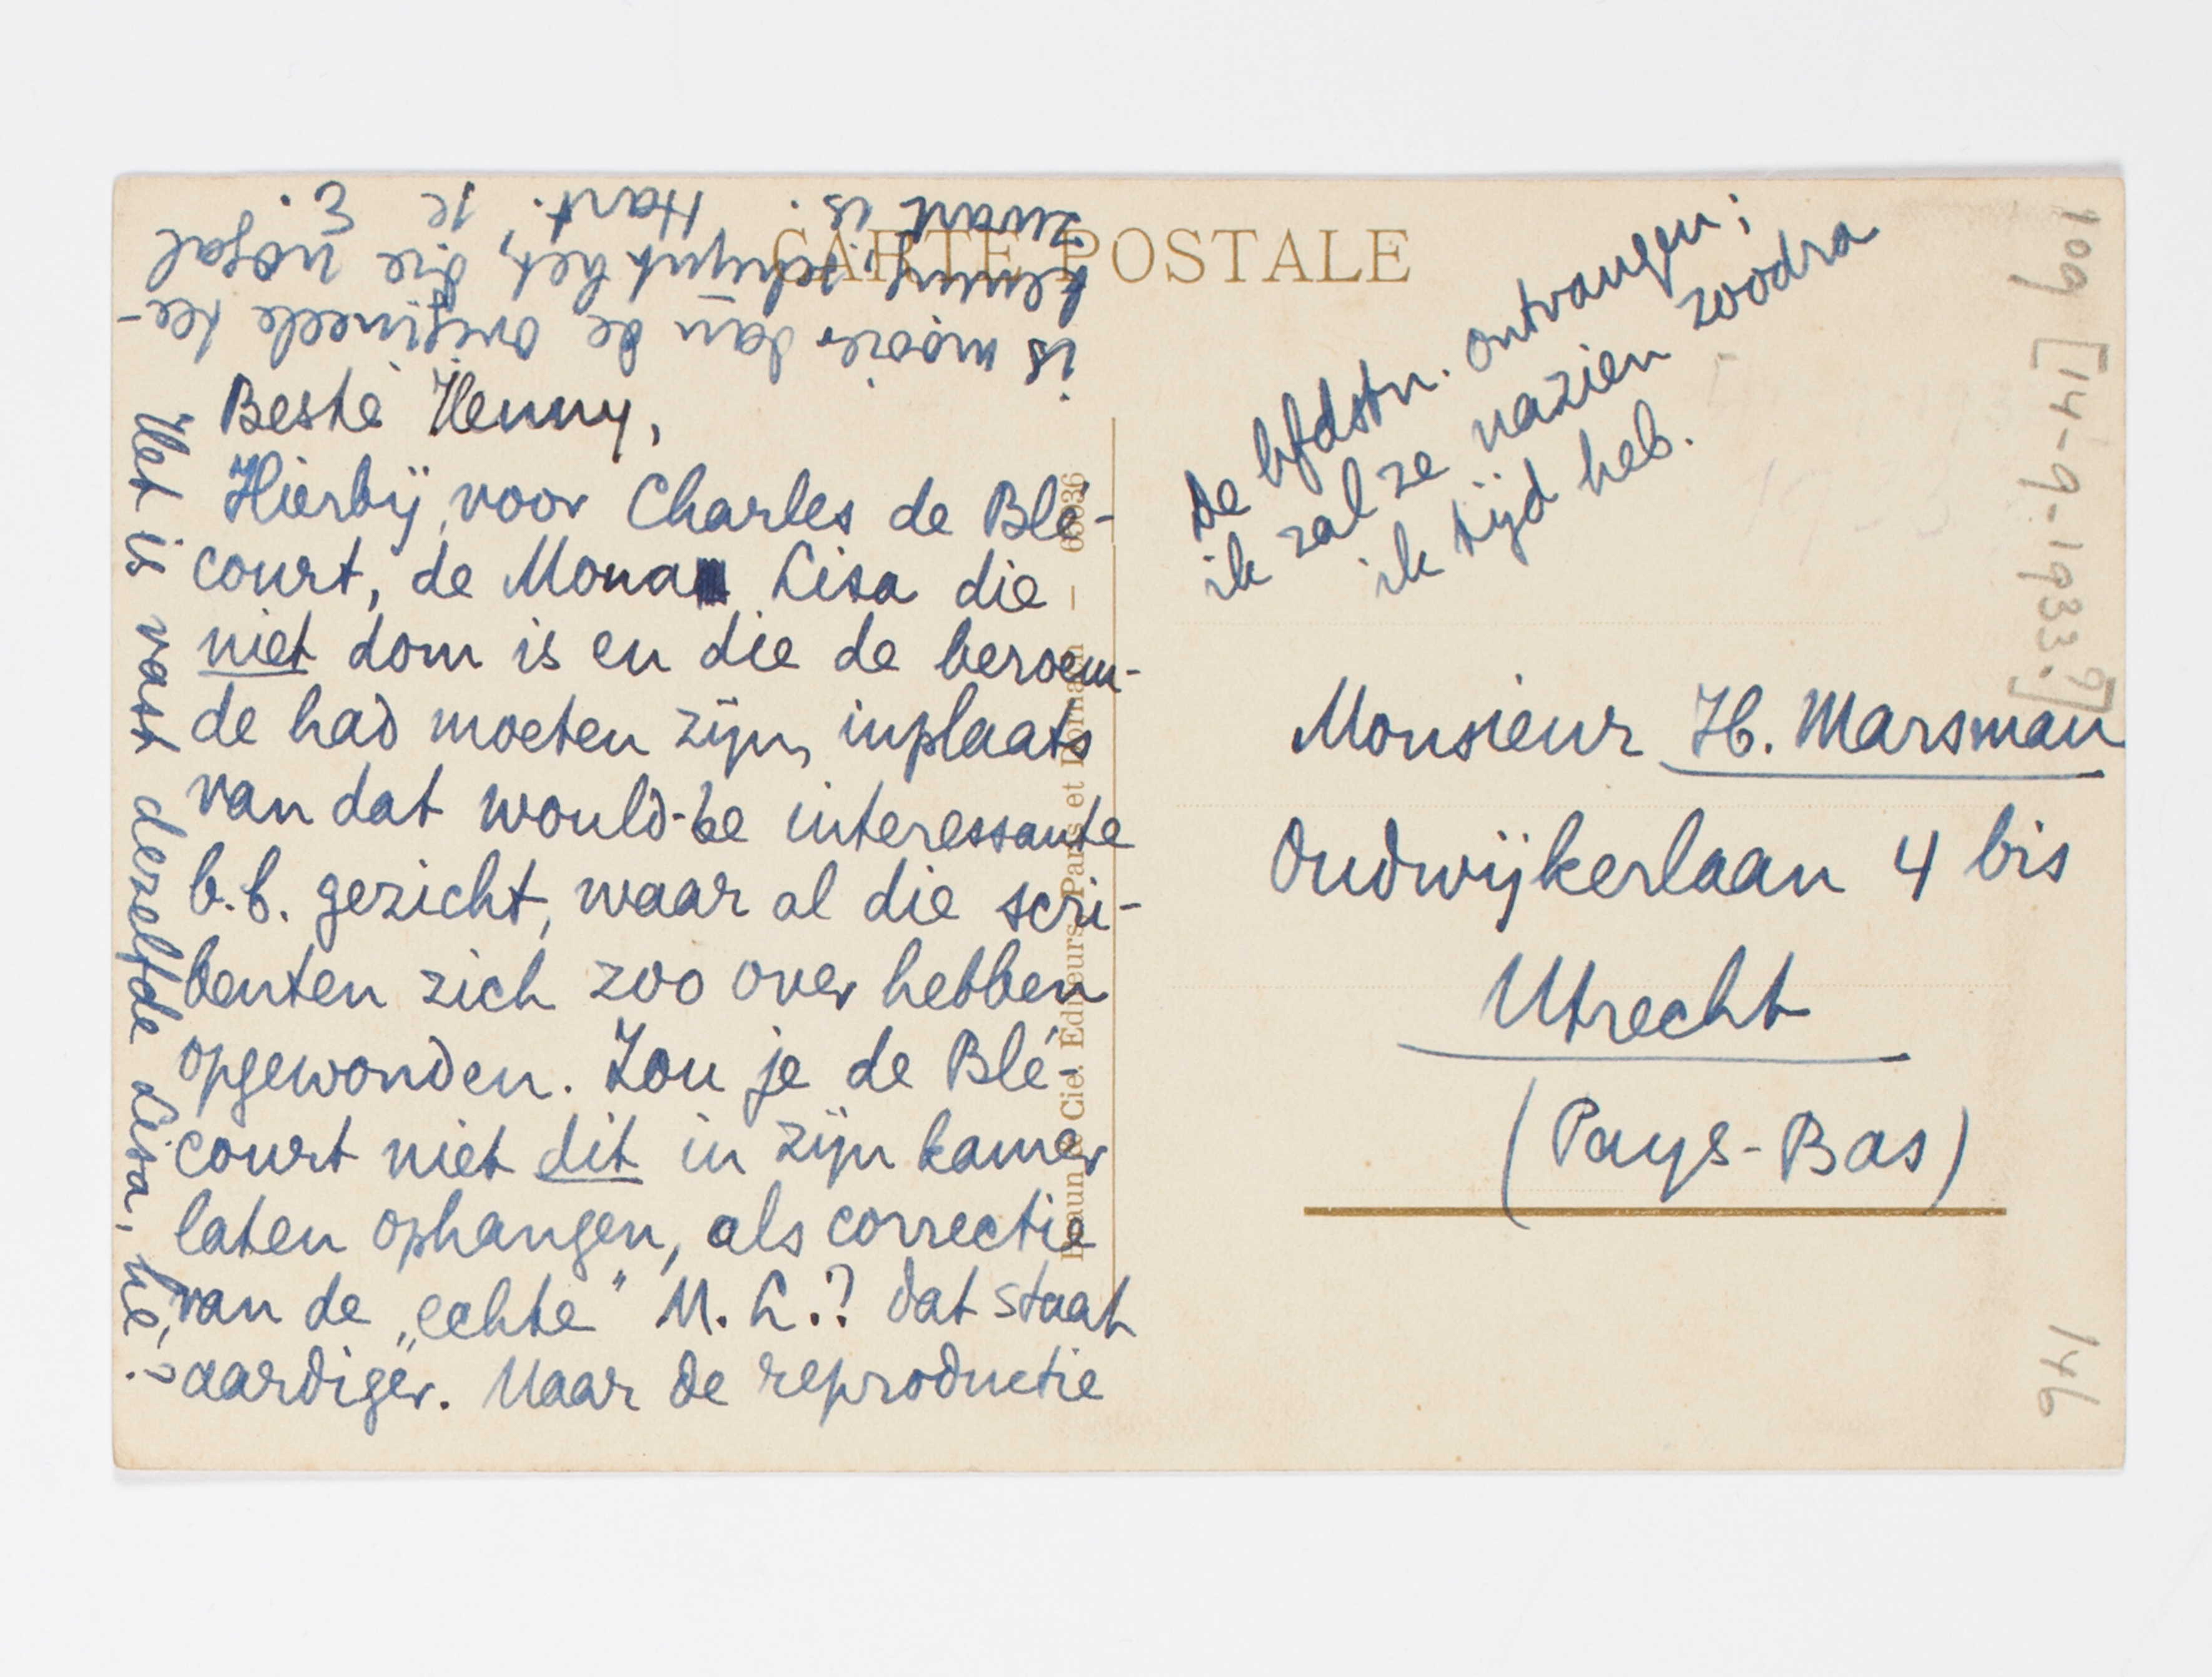 CARTE POSTALE
Beste Henny,
Hierbij, voor Charles de Blé-
court, de Mona Lisa die
niet dom is en die de beroem-
de had moeten zijn, inplaats
van dat would-be interessante
b.b. gezicht, waar al die scri-
benten zich zoo over hebben
opgewonden. Zou je de Blé-
court niet dit in zijn kamer
laten ophangen, als correctie
van de „echte” M. L.? Dat staat
aardiger. Maar de reproductie
is mooier dan de origineele tee-
kening, schijnt het, die nogal
zwart is. Hart. je E.
Het is vast dezelfde Lisa, hè?
De hfdstn. ontvangen;
ik zal ze nazien zoodra
ik tijd heb.
Monsieur H. Marsman
Oudwijkerlaan 4 bis
Utrecht
(Pays-Bas)
Braun & Cie. Editeurs Paris et Dornach —
109 [14-9-1933?]
146